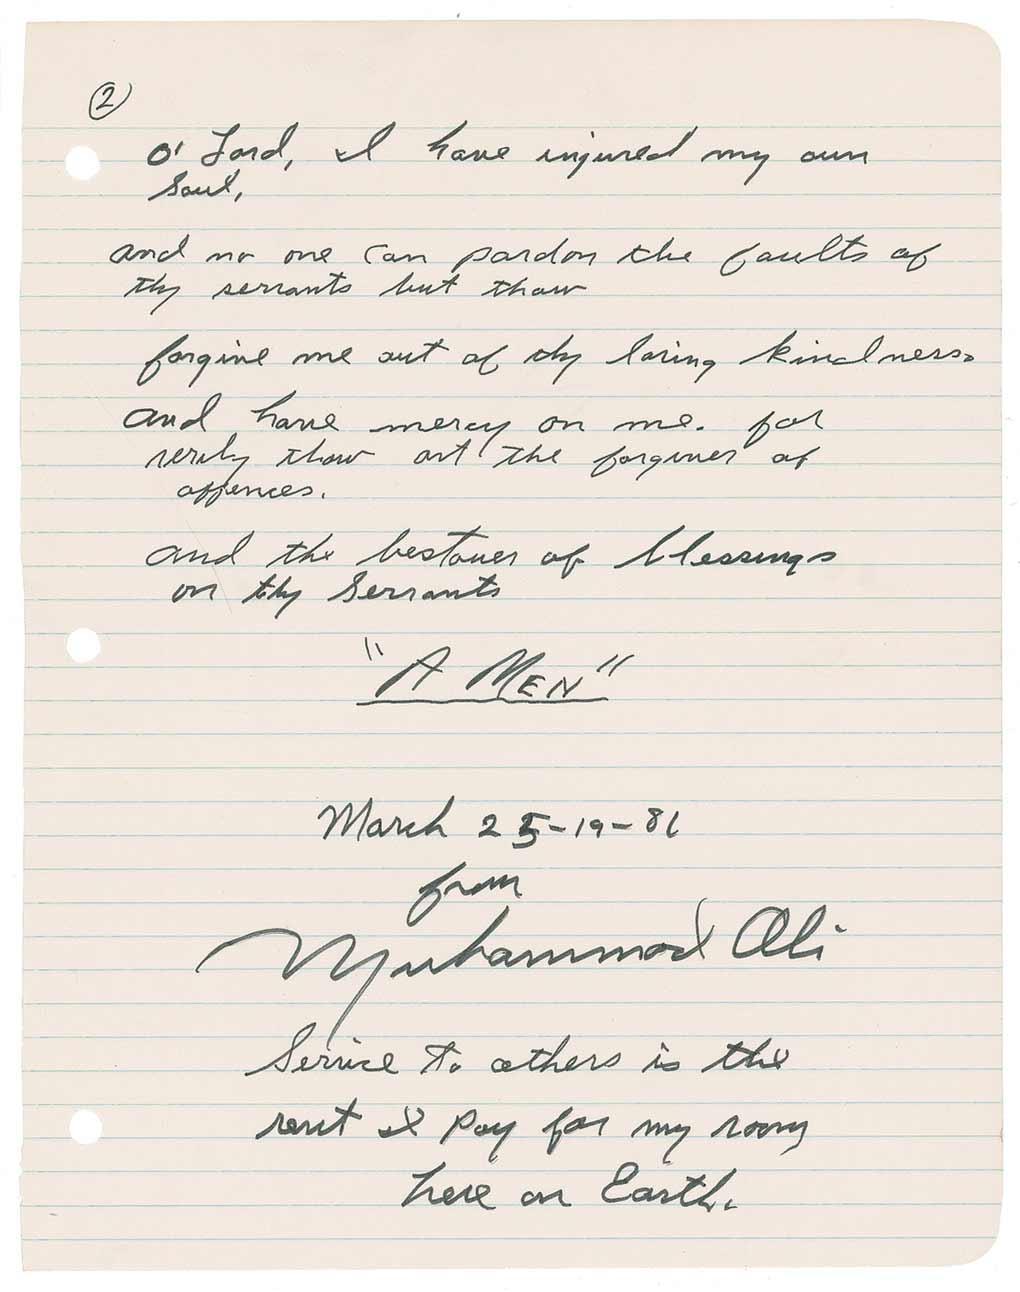 2
O' Lord, I have injured my own
Soul,
and no one can pardon the faults of
thy servants but thou
forgive me out of thy loving kindness.
and have mercy on me. for
verily thou art the forgiver of
offences.
and the bestower of blessings
on thy Servants
"A MEN"
March 25-19-81
from
Muhammad Ali
Service to others is the
rent I pay for my room
here on Earth.